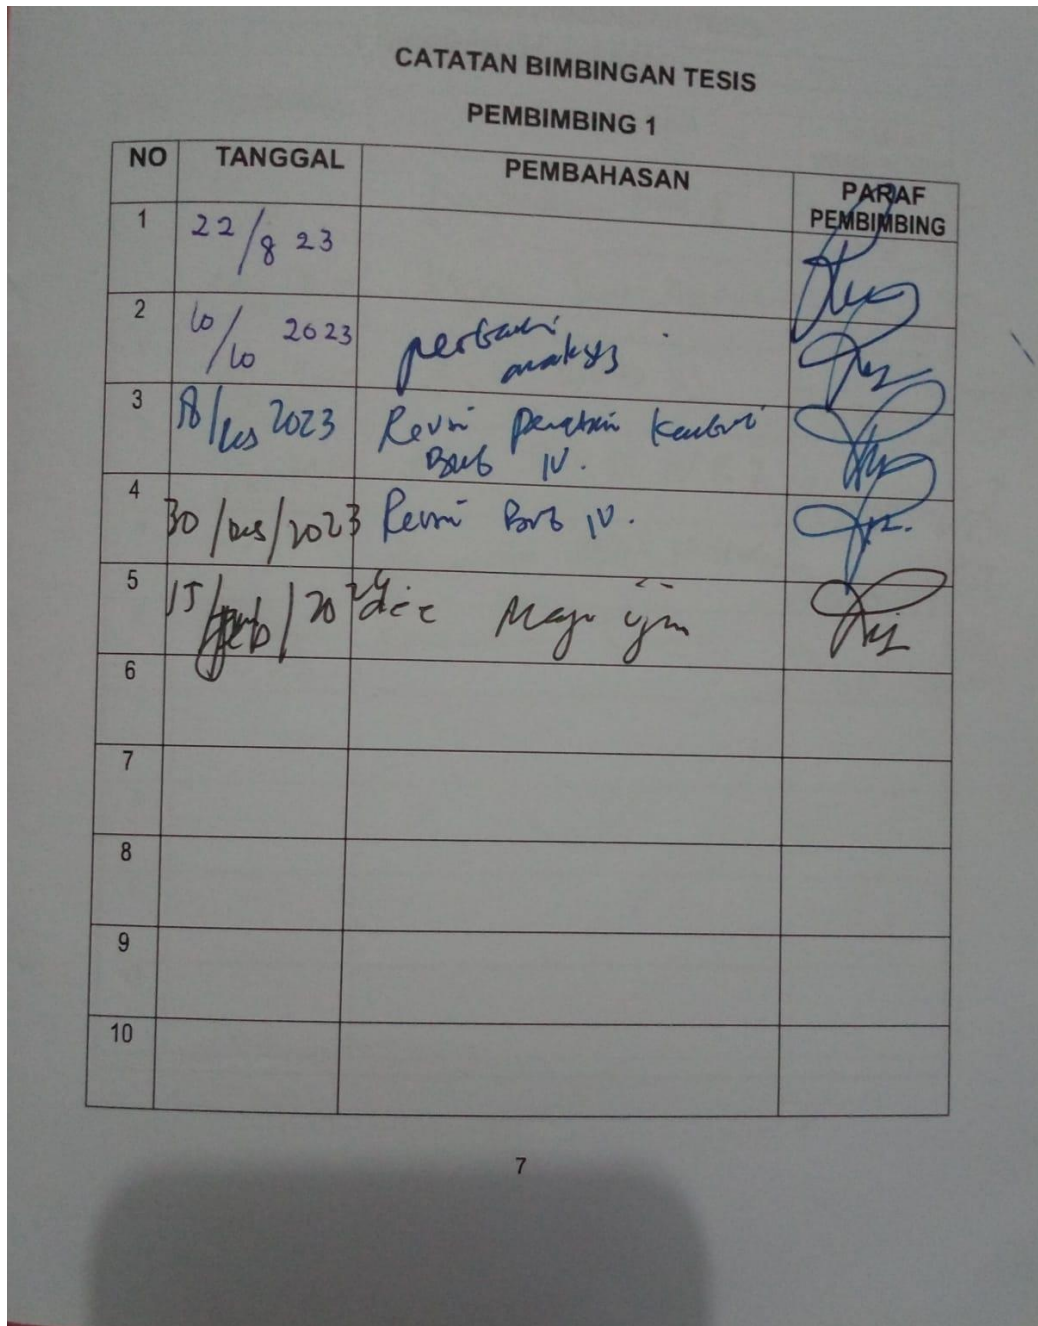 CATATAN BIMBINGAN TESIS
PEMBIMBING 1
NO TANGGAL PEMBAHASAN PARAF PEMBIMBING
1 22/8 23
2 10/10 2023 perbaiki
analisis
3 18/des 2023 Revisi
Bab IV.
4 30/des/2023 Revisi Bab IV.
5 15/feb/2024 acc Maju ujian
6
7
8
9
10
7